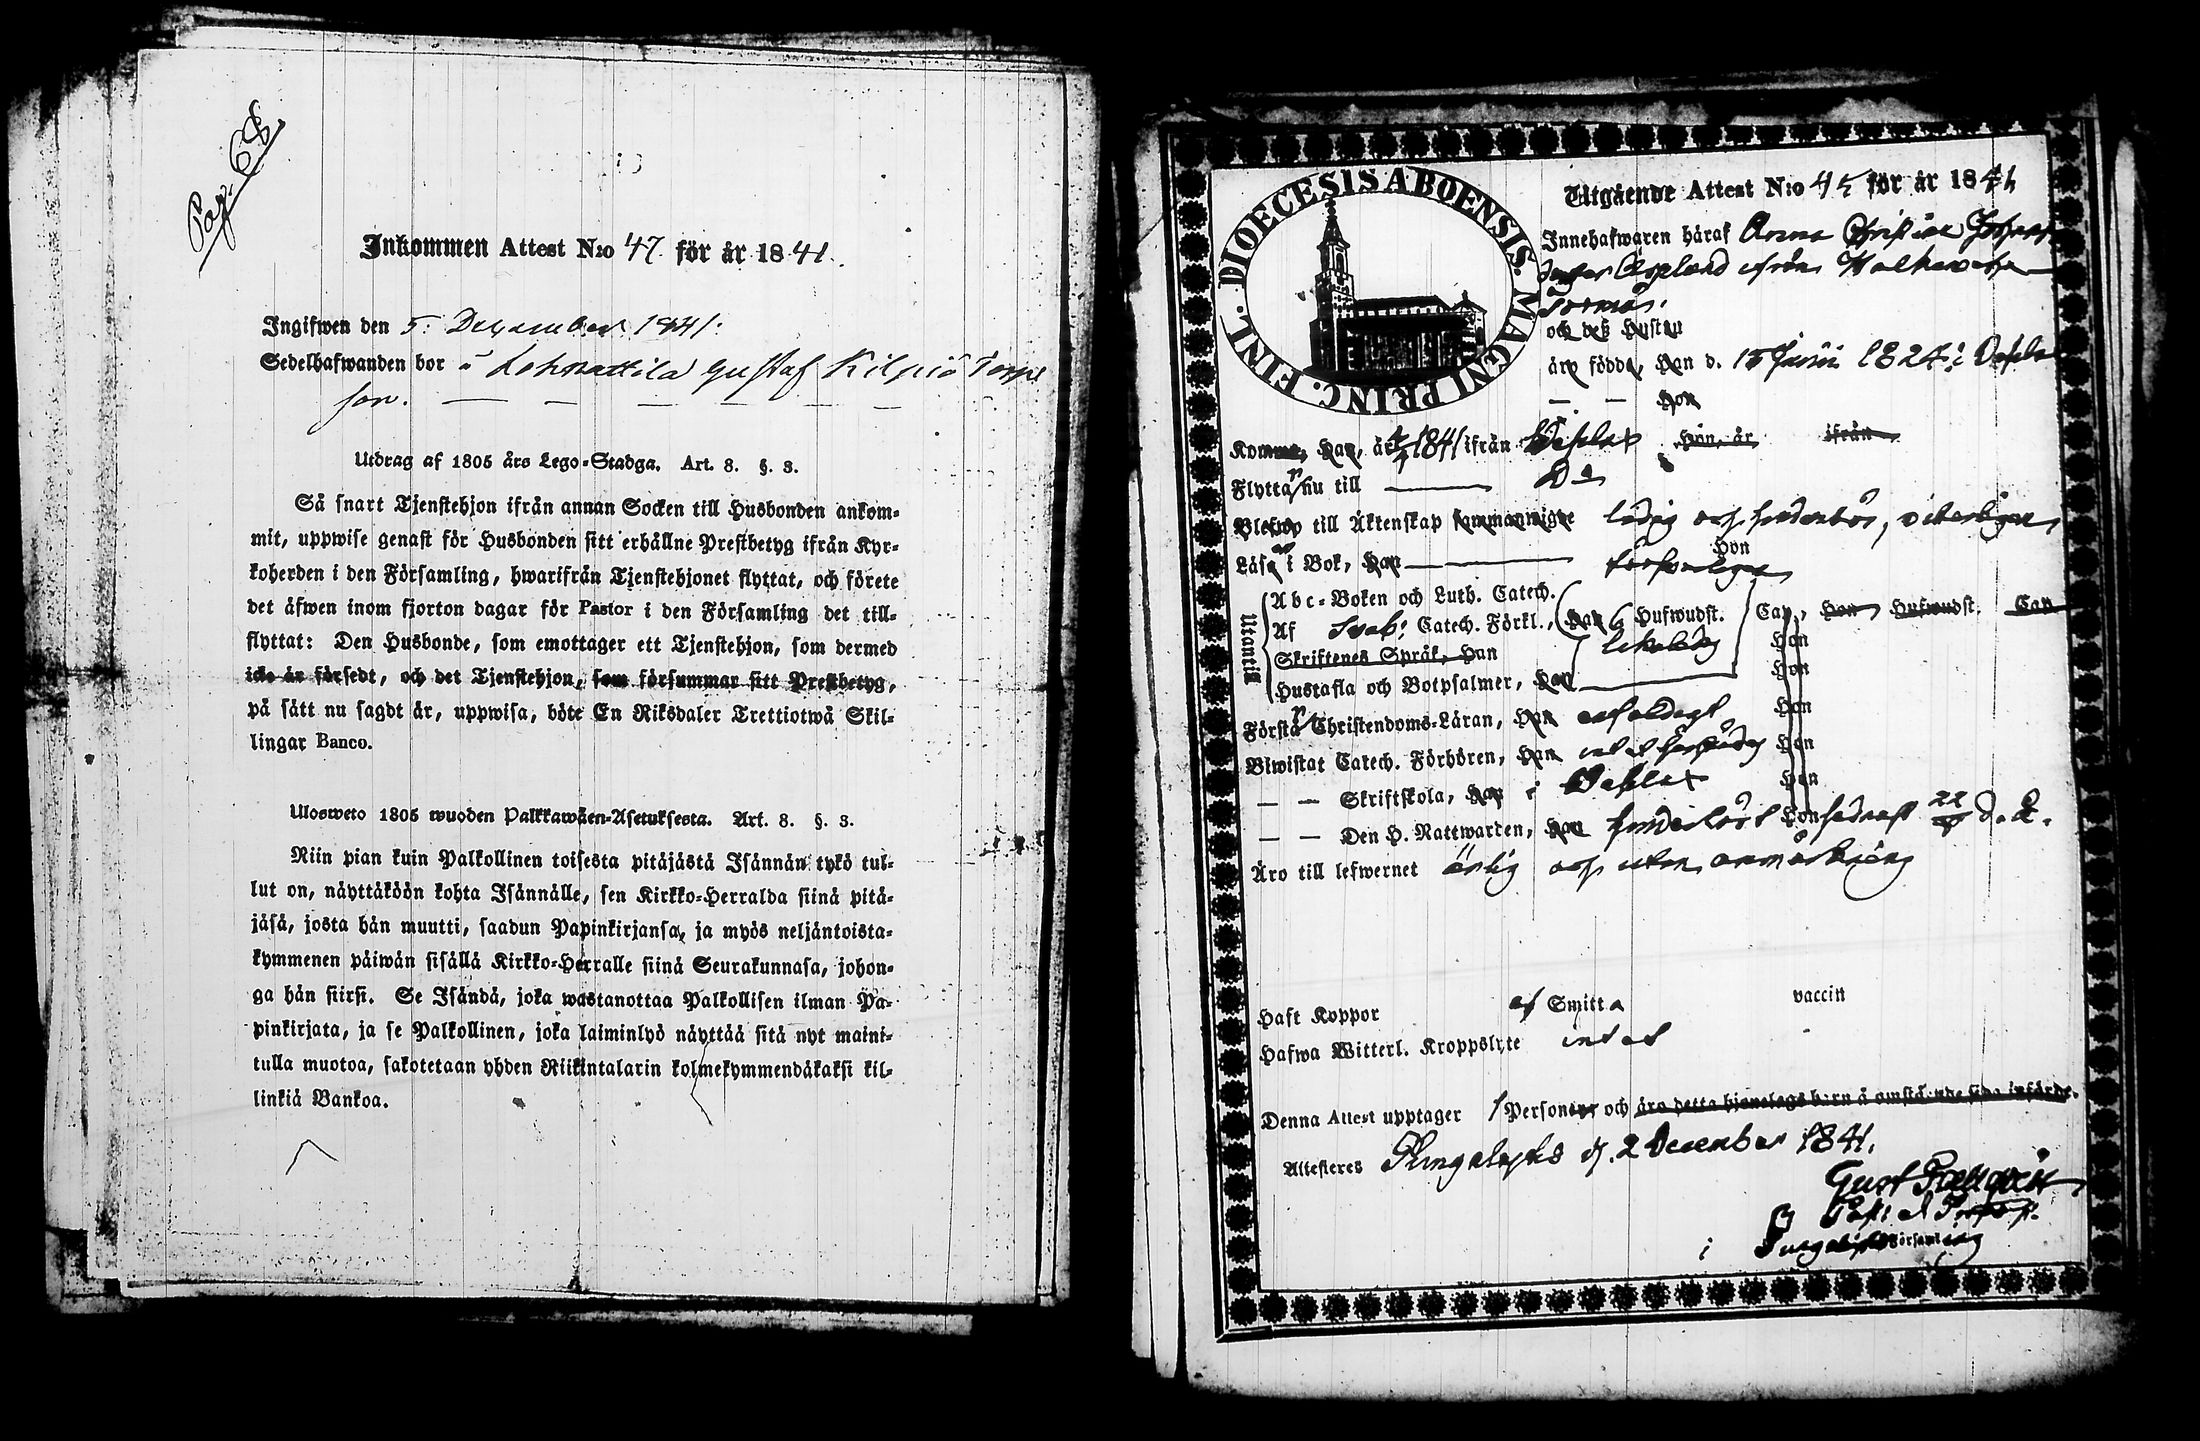 Pag. 68.
Inkommen Attest N:o 47 för år 1841.
Ingifwen den 5. December 1841.
Sedelhafwanden bor å Gustaf Kilpiö Torp
son.
Utdrag af 1805 års Lego-Stadga. Art. 8. §. 3.
Så snart Tjenstehjon ifrån annan Socken till Husbonden ankom-
mit, uppwise genast för Husbonden sitt erhållne Prestbetyg ifrån Kyr-
koherden i den Församling, hwarifrån Tjenstehjonet flyttat, och förete
det äfwen inom fjorton dagar för Pastor i den Församling det till-
flyttat: Den Husbonde, som emottager ett Tjenstehjon, som dermed
icke är försedt, och det Tjenstehjon, som försummar sitt Prestbetyg,
på sätt nu sagdt är, uppwisa, böte En Riksdaler Trettiotwå Skil-
lingar Banco.
Ulosweto 1805 wuoden Palkkawäen-Asetuksesta. Art. 8. §. 3.
Niin pian kuin Palkollinen toisesta pitäjästä Isännän tykö tul-
lut on, näyttäköön kohta Isännälle, sen Kirkko-Herralda siinä pitä-
jäsä, josta hän muutti, saadun Papinkirjansa, ja myös neljäntoista-
kymmenen päiwän sisällä Kirkko-Herralle siinä Seurakunnasa, johon-
ga hän siirsi. Se Isändä, joka wastanottaa Palkollisen ilman Pa-
pinkirjata, ja se Palkollinen, joka laiminlyö näyttää sitä nyt maini-
tulla muotoa, sakotetaan yhden Riikintalarin kolmekymmendäkaksi kil-
linkiä Bankoa.
DIOECESIS ABOENSIS. MAGNI PRINC. FINL.
Utgående Attest N:o 45 för år 1841
Innehafwaren häraf Anna Christina Johans
dotter Asplund ifrån
och dess Hustru
äro födda, Han d. 15 Junii 1824 i
— — Hon
Komne, Han, år 1841 ifrån Hon, år ifrån
Flytta nu till D:o
Blefwo till Äktenskap sammanwigde ledig och hinderlös,
Läsa i Bok, Han Hon
förswarligen
Utantill
Abc-Boken och Luth. Catech.
Af Sveb: Catech. Förkl., Han 6 Hufwudst. Cap., Hon Hufwudst. Cap
Skriftenes Språk, Han Hon
Hustafla och Botpsalmer, Han Hon
Förstå Christendoms-Läran, Han enfaldigt Hon
Biwistat Catech. Förhören, Han Hon
— — Skriftskola, Han i Hon
— — Den H. Nattwarden, Han Hon sednast 22 d. Å.
Äro till lefwernet ärlig och utan anmärkning
Haft Koppor af Smitta vaccin
Hafwa Witterl. Kroppslyte intet
Denna Attest upptager 1 Personer och äro detta hjonelags barn å omstående sida införde.
Attesteres d. 2 December 1841.
Gust
i Församling